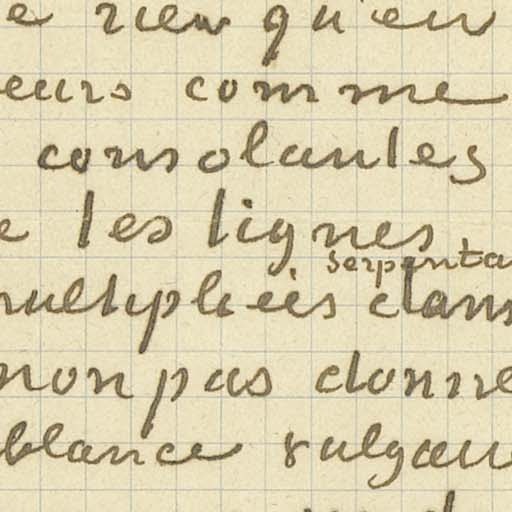 e rien qu'en
eurs comme
consolantes
e les lignes
serpenta
multipliées dans
non pas donne
blance vulgai